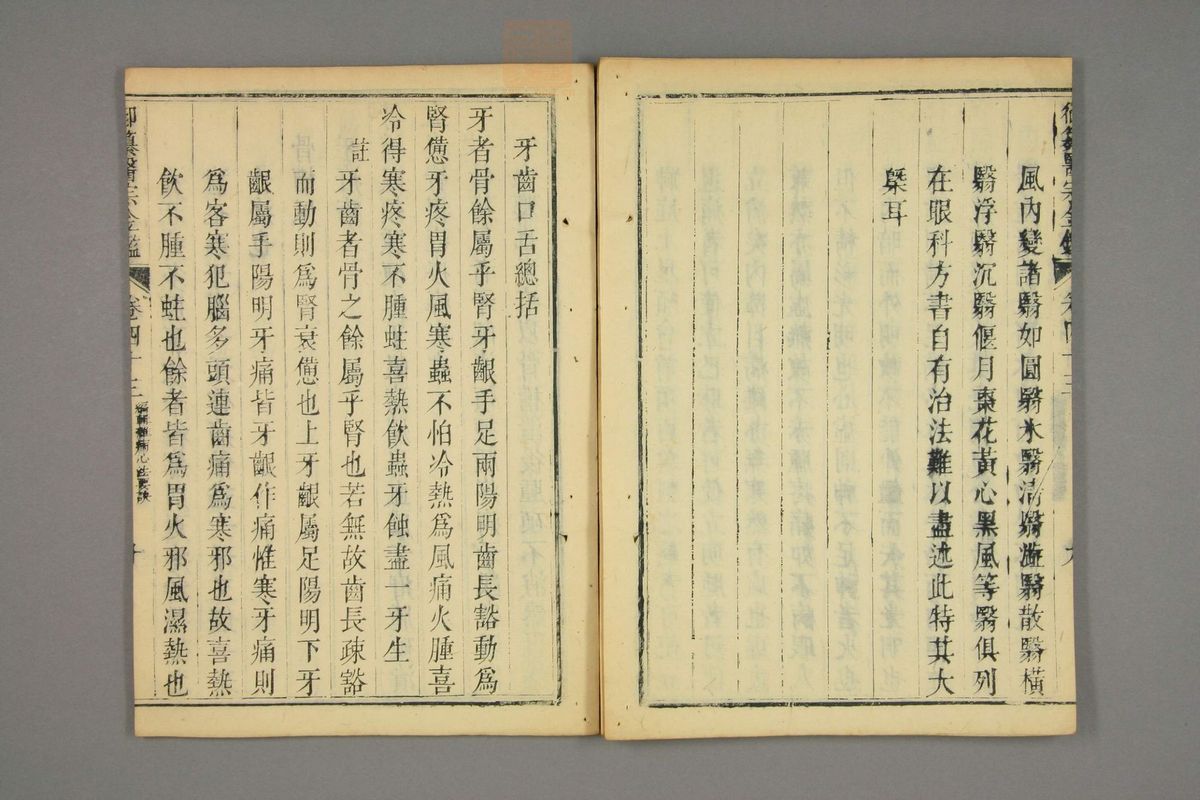 御纂醫宗金鑑
卷四十三
九
風內變諸翳如圓翳氷翳滑翳澁翳散翳橫
翳浮翳沉翳偃月棗花黃心黑風等翳俱列
在眼科方書自有治法難以盡述此特其大
槩耳
牙齒口舌總括
牙者骨餘屬乎腎牙齦手足兩陽明齒長豁動爲
腎憊牙疼胃火風寒蟲不怕冷熱爲風痛火腫喜
冷得寒疼寒不腫蛀喜熱飲蟲牙蝕盡一牙生
註牙齒者骨之餘屬乎腎也若無故齒長疎豁
而動則爲腎衰憊也上牙齦屬足陽明下牙
齦屬手陽明牙痛皆牙齦作痛惟寒牙痛則
爲客寒犯腦多頭連齒痛爲寒邪也故喜熱
飲不腫不蛀也餘者皆爲胃火邪風濕熱也
御纂醫宗金鑑
卷四十三
編輯雜病心法要訣